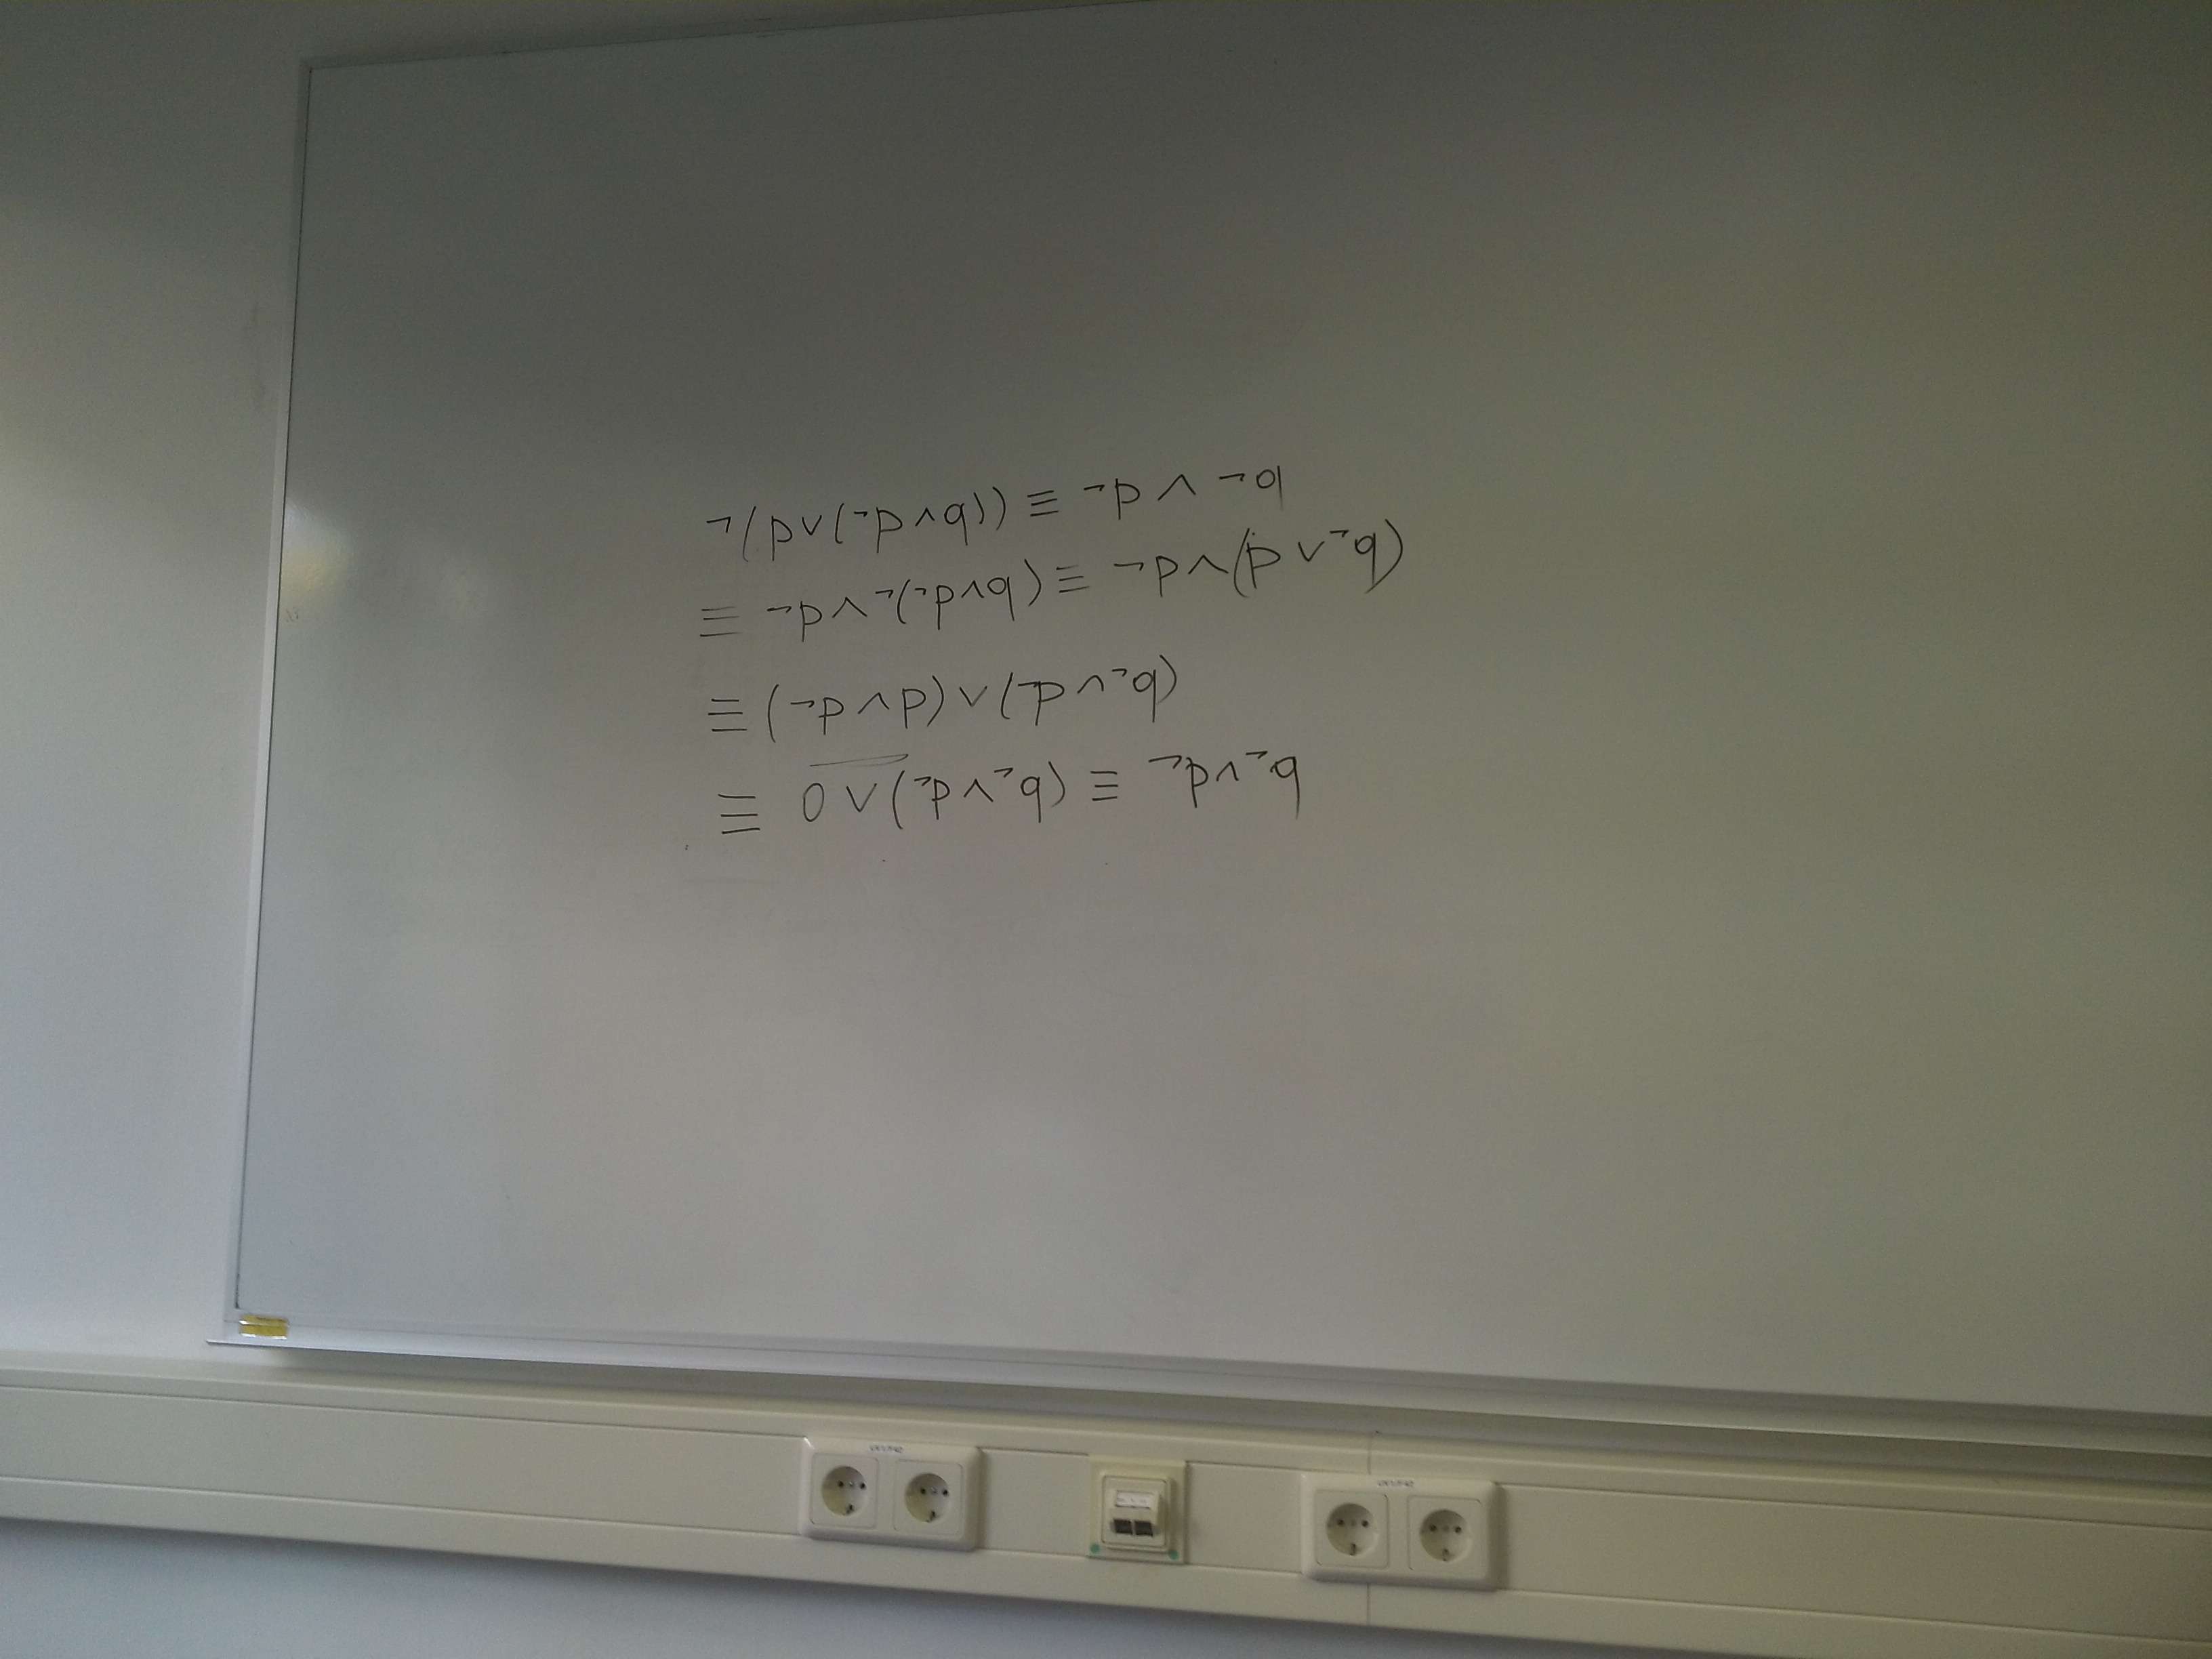 ¬(p∨(¬p∧q)) ≡ ¬p ∧ ¬q
≡ ¬p∧¬(¬p∧q) ≡ ¬p∧(p∨¬q)
≡ (¬p∧p)∨(¬p∧¬q)
≡ 0∨(¬p∧¬q) ≡ ¬p∧¬q